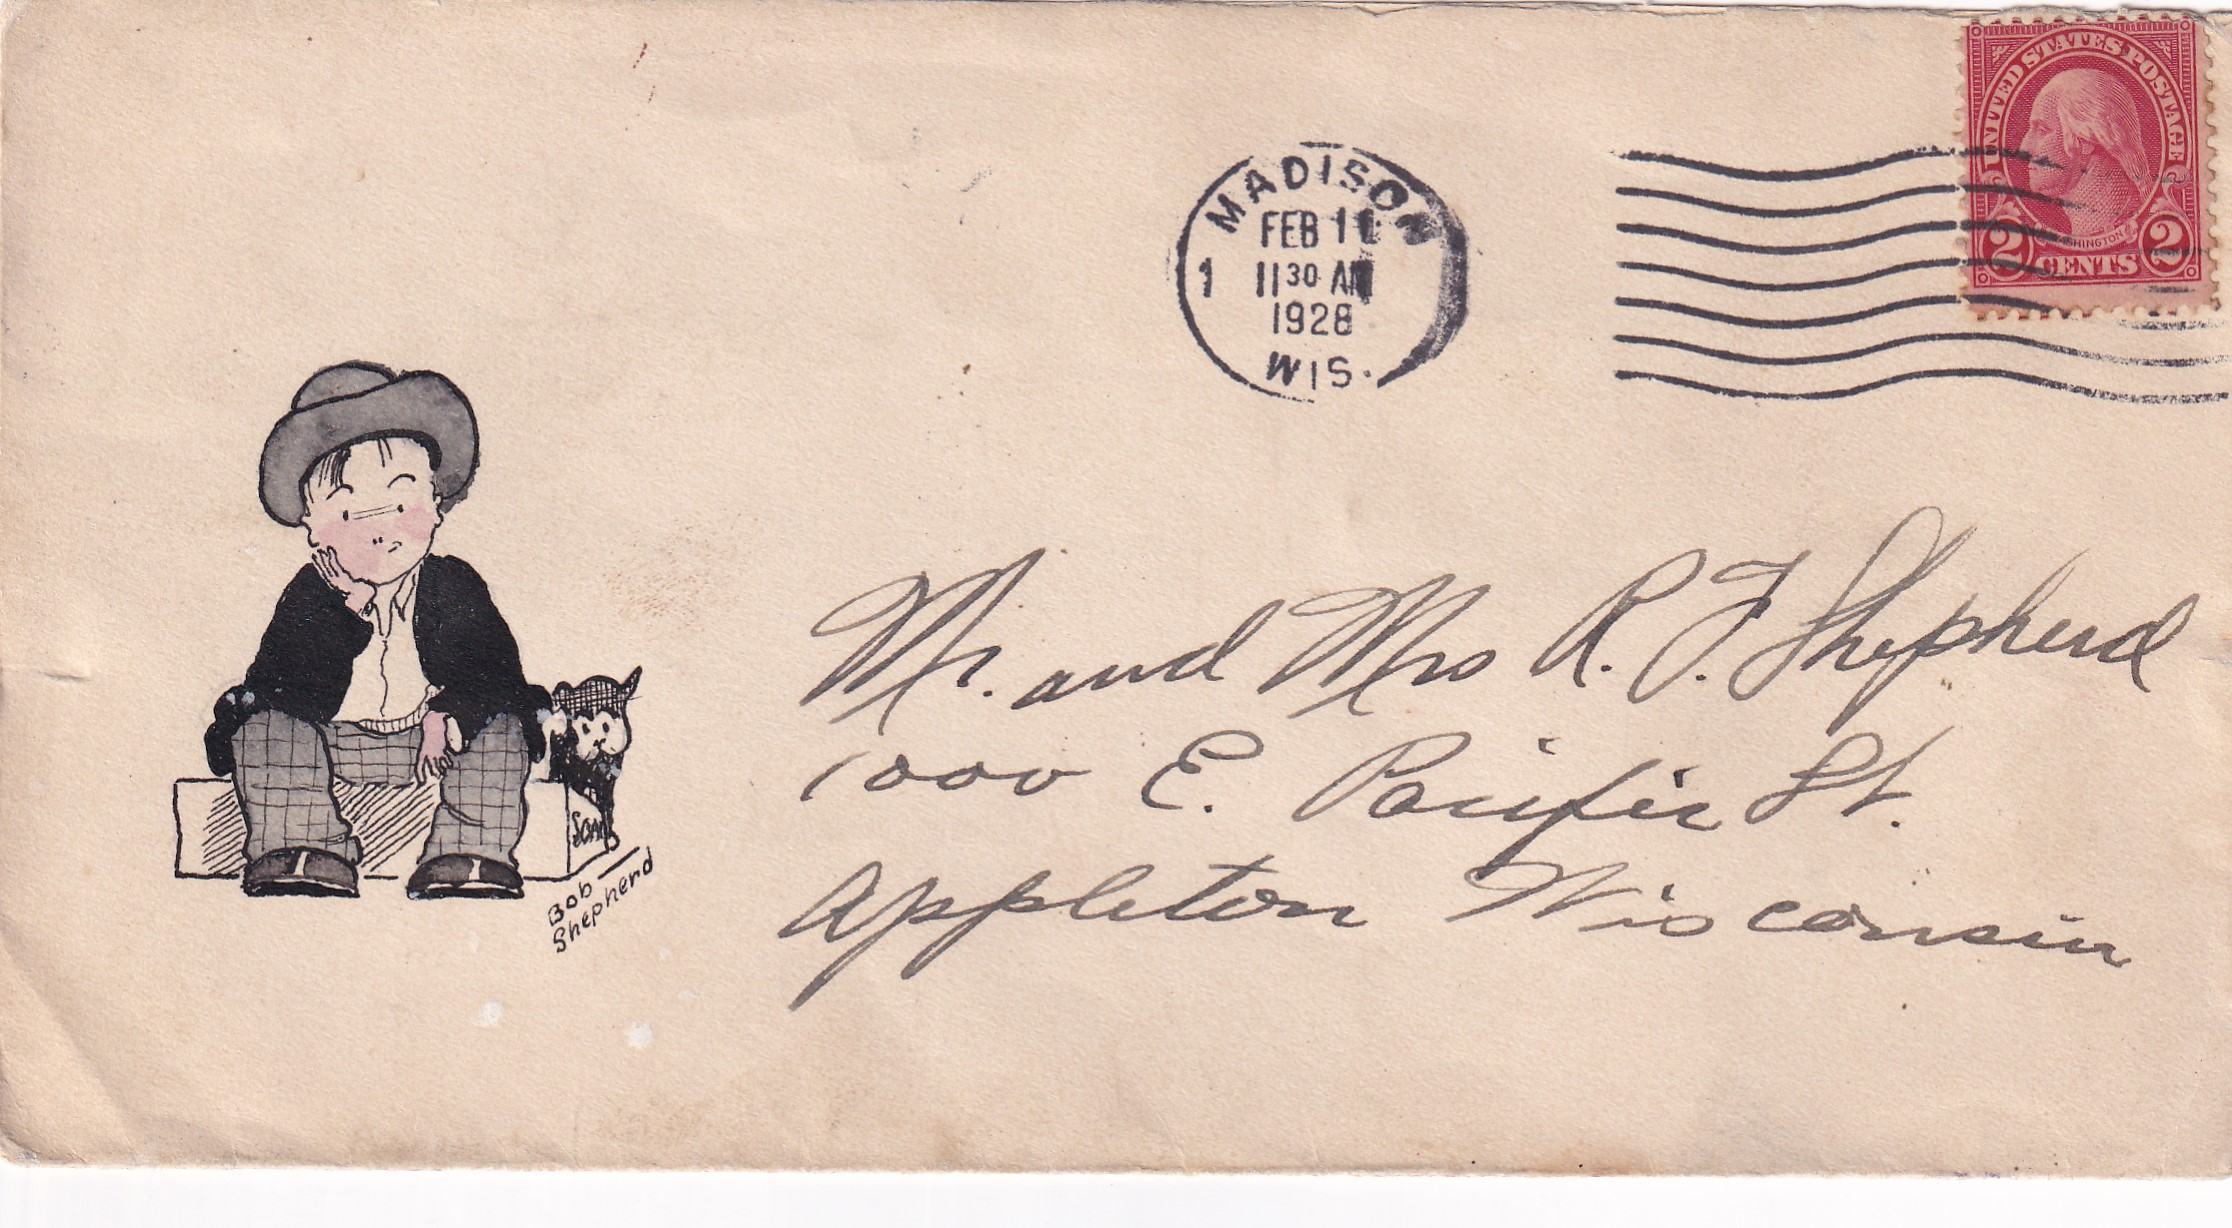 UNITED STATES POSTAGE
WASHINGTON
2 CENTS 2
MADISON
FEB 11
1 11 30 AM
1928
WIS.
Mr. and Mrs R. F. Shepherd
1000 E. Pacific St.
Appleton Wisconsin
SOAP
Bob
Shepherd